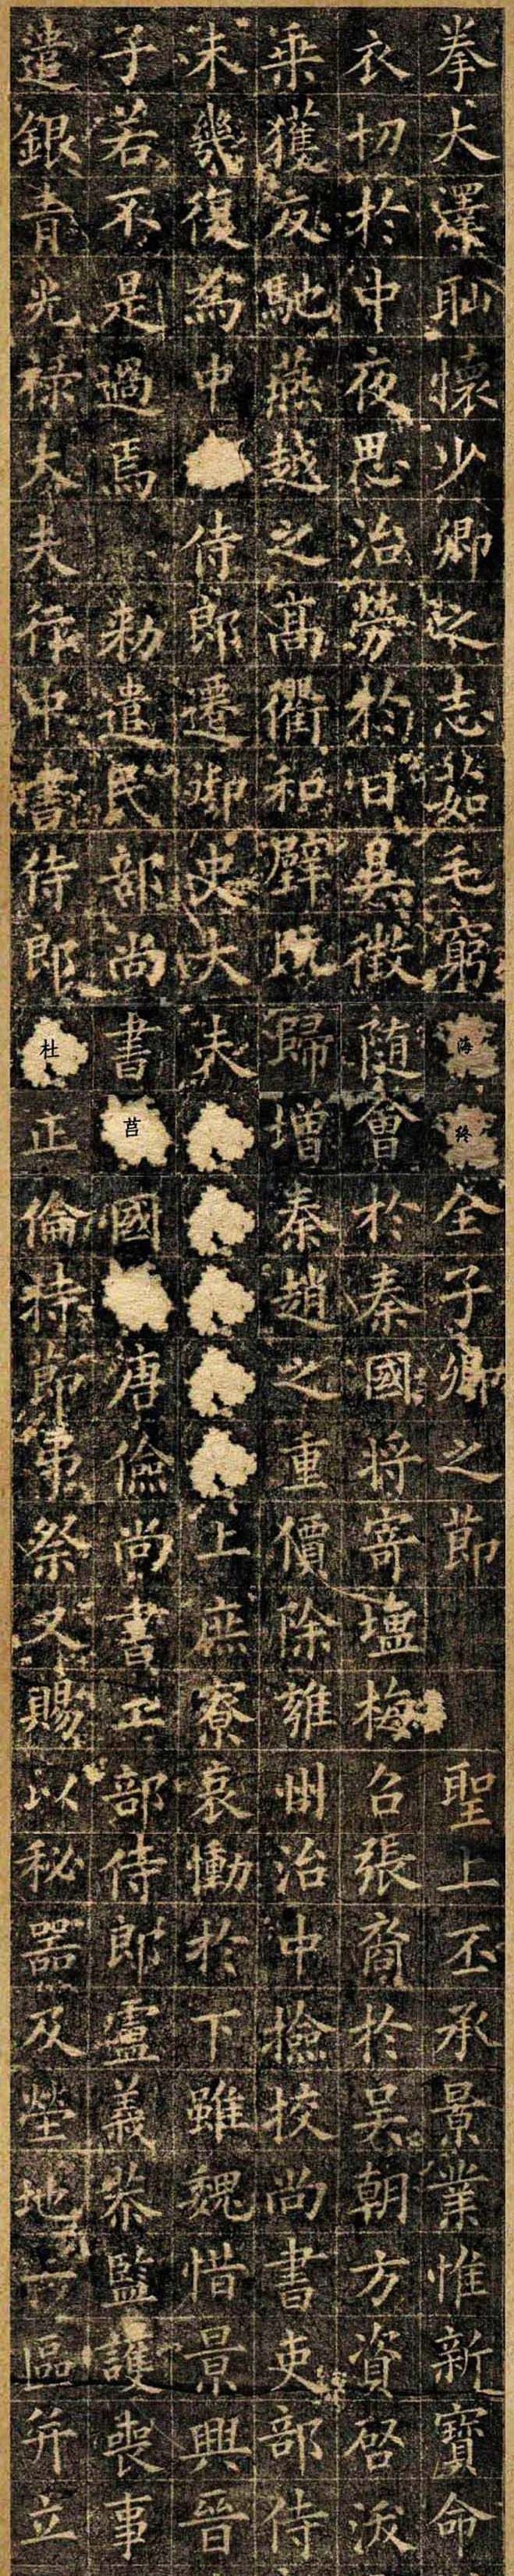 拳大澤耻懷少卿之志茹毛窮海終全子卿之節 聖上丕承景業惟新寶命
衣切於中夜思治勞於日昃徵随會於秦國将寄塩梅召張裔於吴朝方資啓沃
乗獲反馳燕越之萬衢和璧既歸增秦趙之重價除雍州治中撿挍尚書吏部侍
未幾復為中侍郎遷御史大夫上庶寮哀慟於下雖魏惜景興晉
子若不是過焉 勑遣民部尚書莒國唐儉尚書工部侍郎盧義恭監護喪事
遣銀青光禄大夫行中書侍郎杜正倫持節弔祭又賜以秘器及塋地一區并立